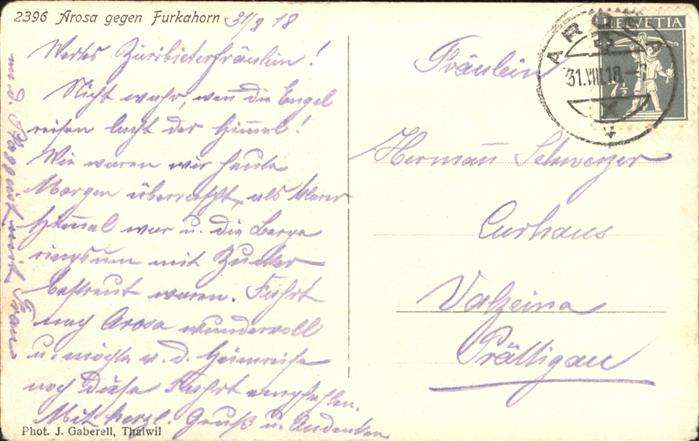 2396 Arosa gegen Furkahorn 31/8 18
Wertes Züribieterfräulein!
Nicht wahr, wenn die Engel
reisen lacht der Himmel!
Wie waren wir heute
Morgen überrascht, als klarer
Himmel war u. die Berge
ringsum mit Zucker
bestreut waren. Fahrt
nach Arosa wundervoll
u. möchte v. d. Heimreise
noch diese Fahrt empfehlen.
Mit herzl. Gruß u. Andenken
Phot. J. Gaberell, Thalwil
HELVETIA
7½
AROSA
31.VIII.18
Fräulein
Hermann Schwerzer
Curhaus
Valzeina
Prättigau